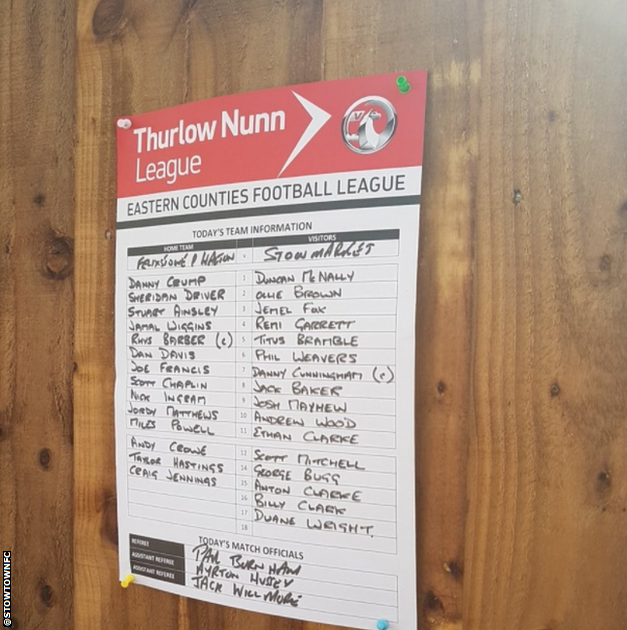 Thurlow Nunn
League
EASTERN COUNTIES FOOTBALL LEAGUE
TODAY'S TEAM INFORMATION
HOME TEAM VISITORS
FELIXSTOWE & WALTON v STOWMARKET
DANNY CRUMP 1 DUNCAN McNALLY
SHERIDAN DRIVER 2 OLLIE BROWN
STUART AINSLEY 3 JEMEL FOX
JAMAL WIGGINS 4 REMI GARRETT
RHYS BARBER (c) 5 TITUS BRAMBLE
DAN DAVIS 6 PHIL WEAVERS
JOE FRANCIS 7 DANNY CUNNINGHAM (c)
SCOTT CHAPLIN 8 JACK BAKER
NICK INGRAM 9 JOSH MAYHEW
JORDY MATTHEWS 10 ANDREW WOOD
MILES POWELL 11 ETHAN CLARKE
ANDY CROWE 12 SCOTT MITCHELL
TAYLOR HASTINGS 14 GEORGE BUGG
CRAIG JENNINGS 15 ANTON CLARKE
16 BILLY CLARK
17 DUANE WRIGHT.
18
TODAY'S MATCH OFFICIALS
REFEREE PAUL BURNHAM
ASSISTANT REFEREE AYRTON HUSSEY
ASSISTANT REFEREE JACK WILLMORE
@STOWTOWNFC